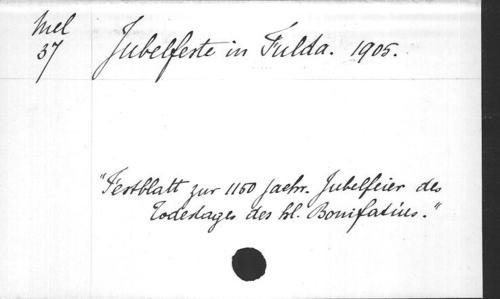 Mel
37
Jubelfeste in Fulda. 1905.
"Festblatt zur 1150 jaehr. Jubelfeier des
Todestages des hl. Bonifatius."